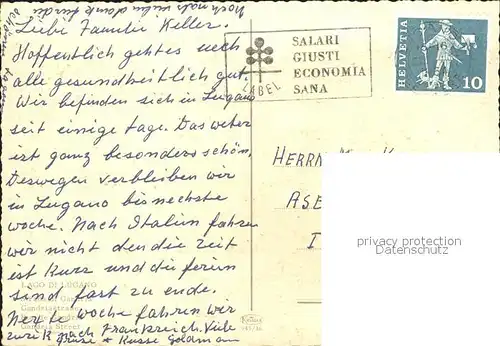 Noch mals vielen dank für die
Liebe Familie Keller.
Hoffentlich geht es euch
alle gesundheitlich gut.
Wir befinden sich in Lugano
seit einige tage. Das weter
ist ganz besonders schön,
Deswegen verbleiben wir
in Lugano bis nechste
woche. Nach Italien fahren
wir nicht den die zeit
ist Kurz und die ferien
sind fast zu ende.
Nexte woche fahren wir
zurik nach Frankreich. Viele
Grüsse + Küsse Goldmann
LABEL
SALARI
GIUSTI
ECONOMIA
SANA
HELVETIA
10
HERRN
ASE
I
privacy protection
Datenschutz
LAGO DI LUGANO
Gandria Street